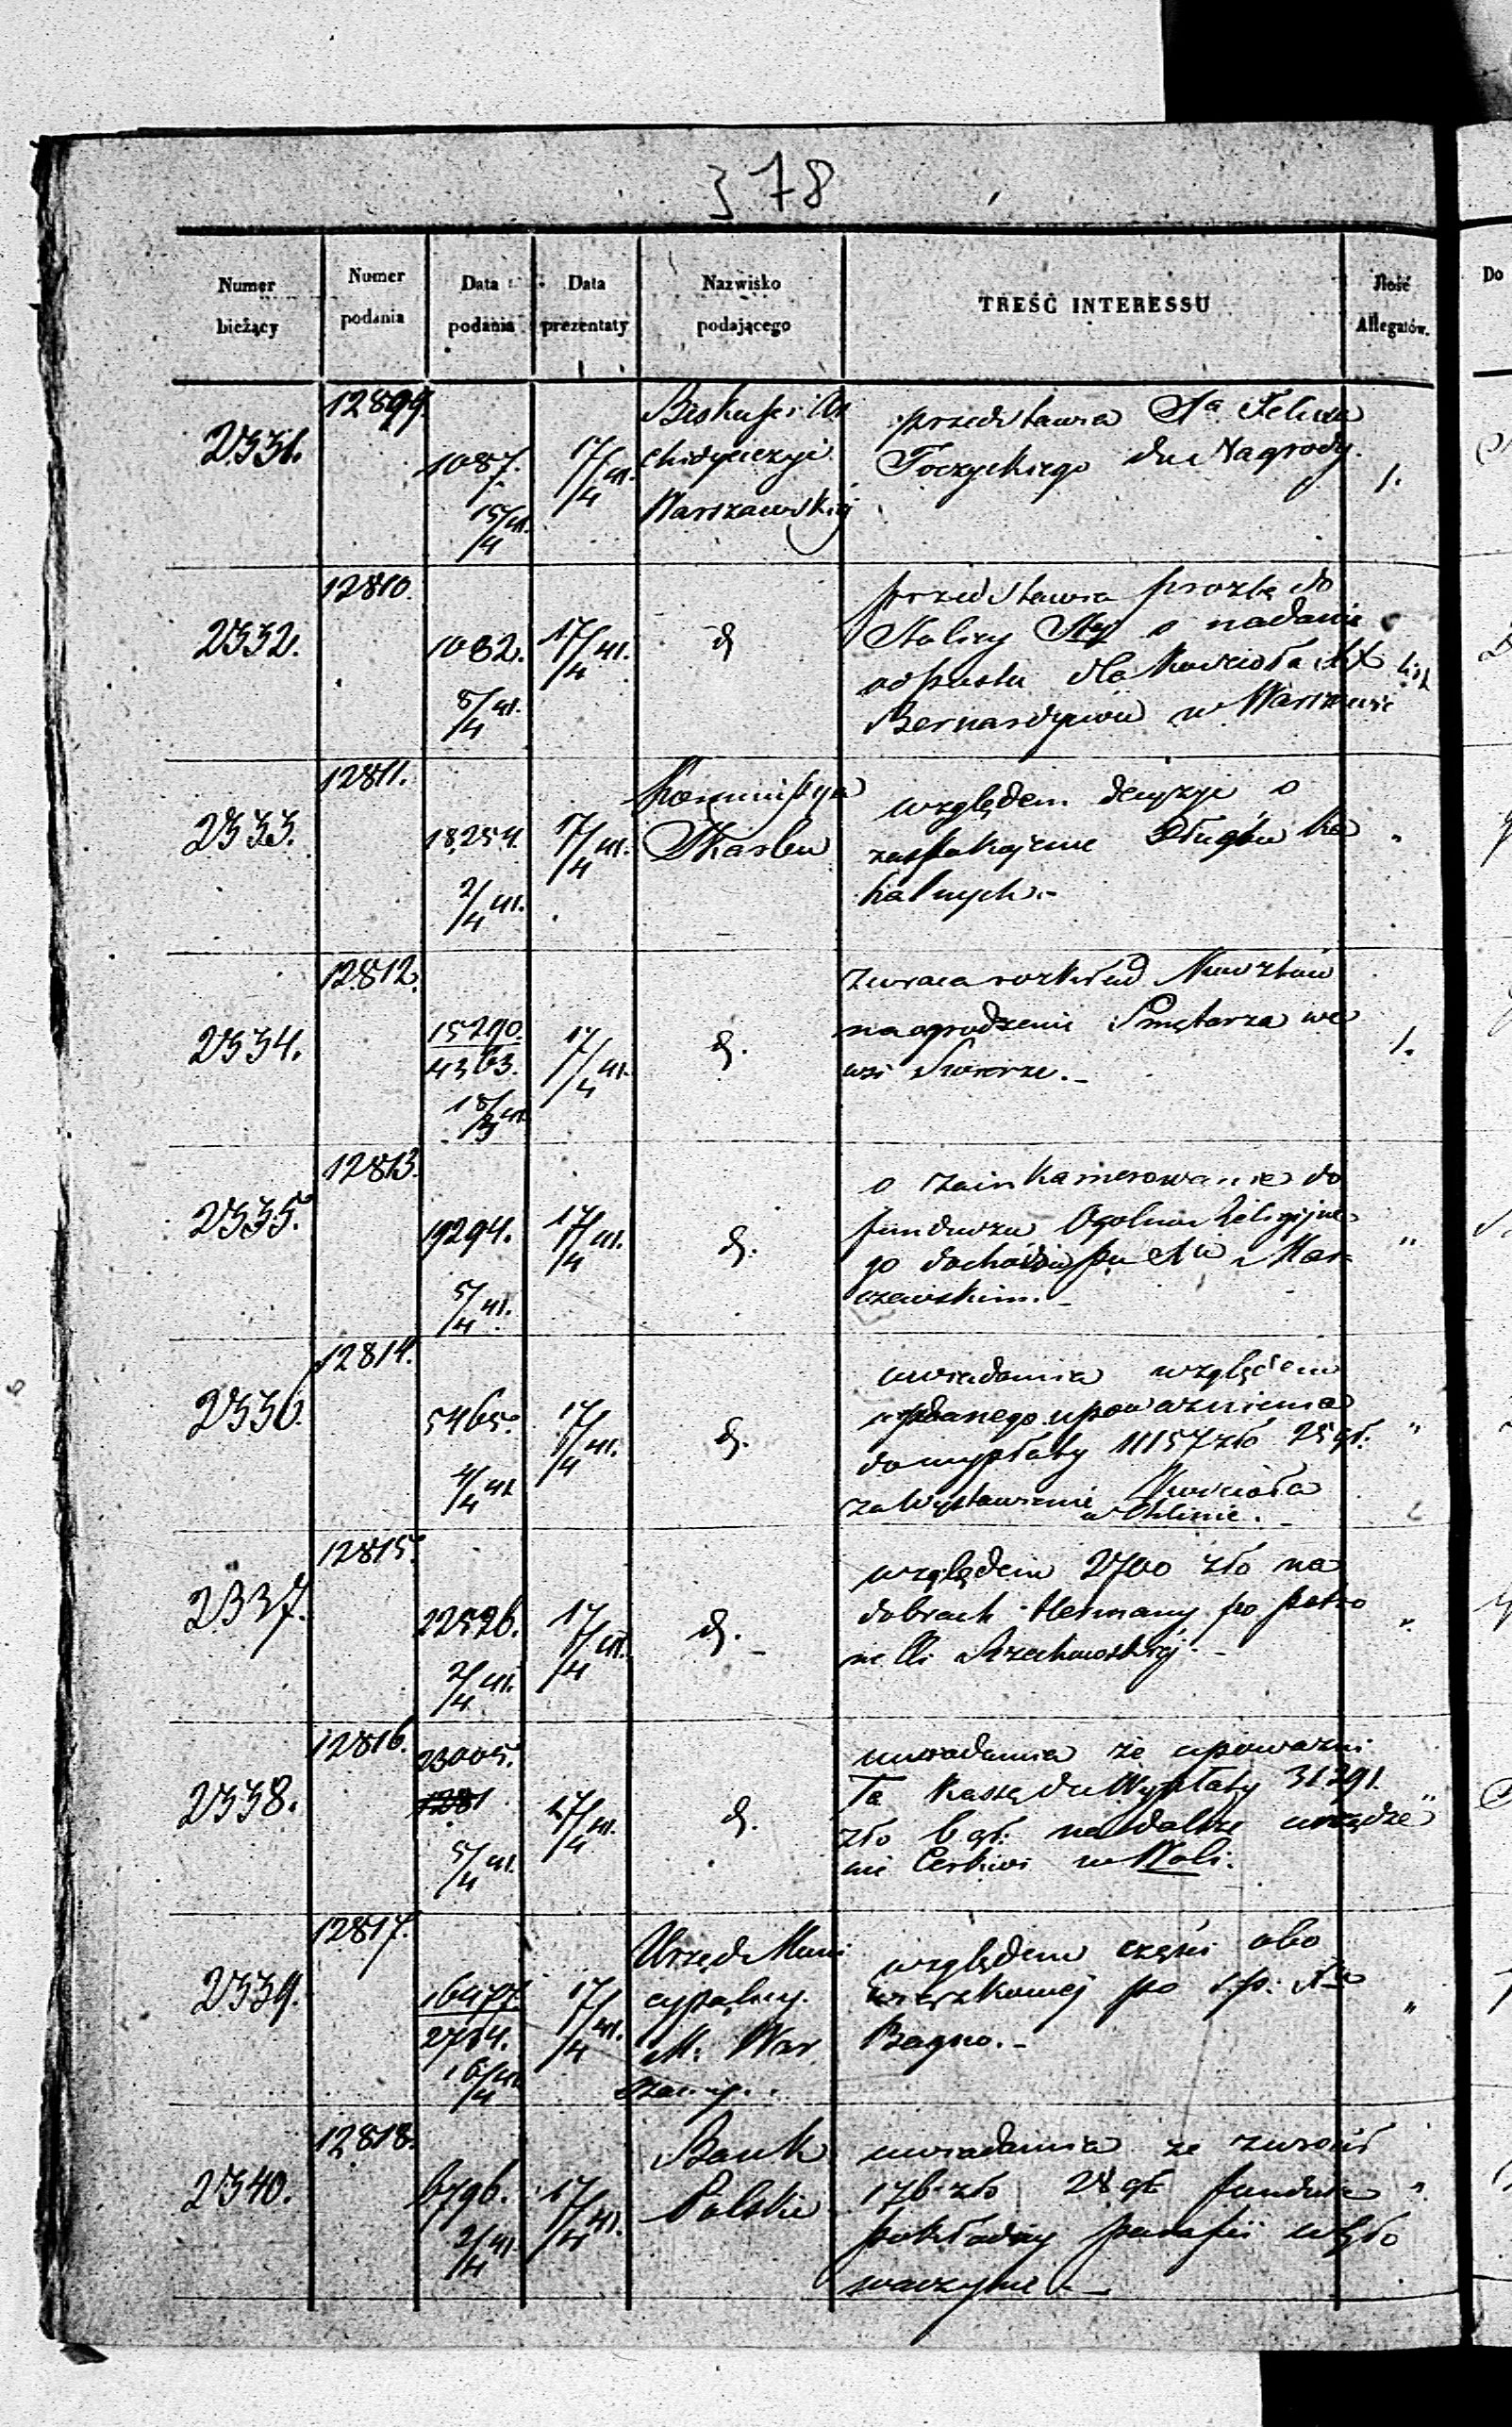 378
Numer bieżący
Numer podania
Data podania
Data prezentaty
Nazwisko podającego
TREŚĆ INTERESSU
Ilość Allegatów.
Do
2331.
12899.
1087.
15/4 41.
17/4 41.
Biskup i Ar
chidyecezyi
Warszawskiej
przedstawia Xa Felixa
Toczyckiego do Nagrody.
1.
2332.
12810.
1082.
8/4 41.
17/4 41.
d
przedstawia prozbę do
Stolicy Stej o nadanie
odpustu dla Kościoła XX
Bernardynów w Warszawie
2333.
12811.
18,254.
2/4 41.
17/4 41.
Kommissya
Skarbu
względem decyzyi o
zaspokojenie długów Ka
halnych.-
"
2334.
12812.
15290.
4363.
18/3 41.
17/4 41.
d.
zwraca rozkład Kosztów
na ogrodzenie Smętarza we
wsi Swierze.-
1.
2335.
12813.
19294.
5/4 41.
17/4 41.
d.
o zainkamerowanie do
funduszu Ogólno Religijne
go dochodów po
czewskim.-
"
2336.
12814.
5465.
4/4 41.
17/4 41.
d.
uwiadamia względem
wydanego upoważnienia
do wypłaty 11157 zło 25 gł:
za wystawienie Kościoła
w Chlinie.-
"
2337.
12815.
22526.
2/4 41.
17/4 41.
d.-
względem 2700 zło na
dobrach Hermany po Petro
nelli Orzechowskiej.-
"
2338.
12816.
23005.
1281
5/4 41.
17/4 41.
d.
uwiadamia że upoważni
ła Kassę do Wypłaty 31291.
zło 6 gł: na dalsze urządze
nie Cerkwi w Woli.
"
2339.
12817.
16477.
2754.
16/4 41.
17/4 41.
Urząd Muni
cypalny
M. War
szawy.
względem części obo
wiązkowej po ś.p. Xu
Bagno.-
"
2340.
12818.
6796.
2/4 41.
17/4 41.
Bank
Polski
uwiadamia że zwrócił
176 zło 28 gł fundusz
pokładny parafii w Zło
waczynie -
"